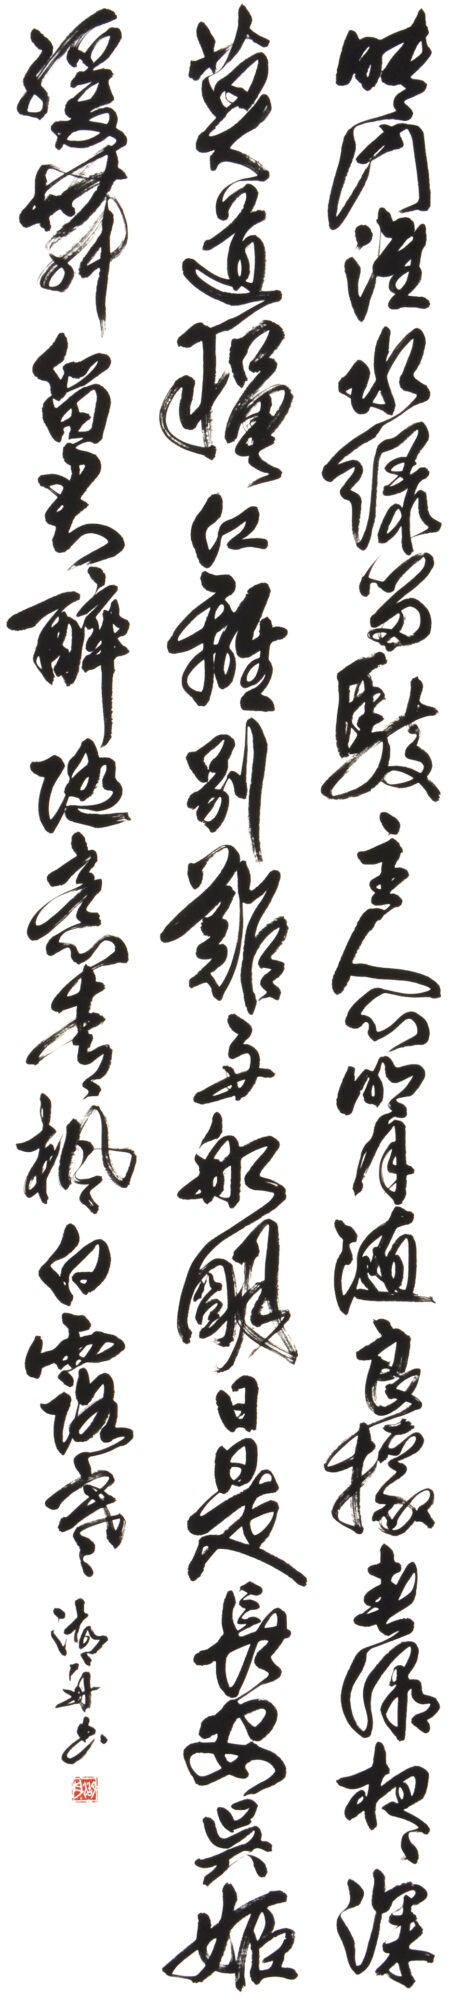 映門淮水綠留騎主人心明月隨良掾春潮夜々深
莫道穐江離別難舟船明日是長安吳姬
緩舞留君醉隨意青楓白露寒
湖舟書